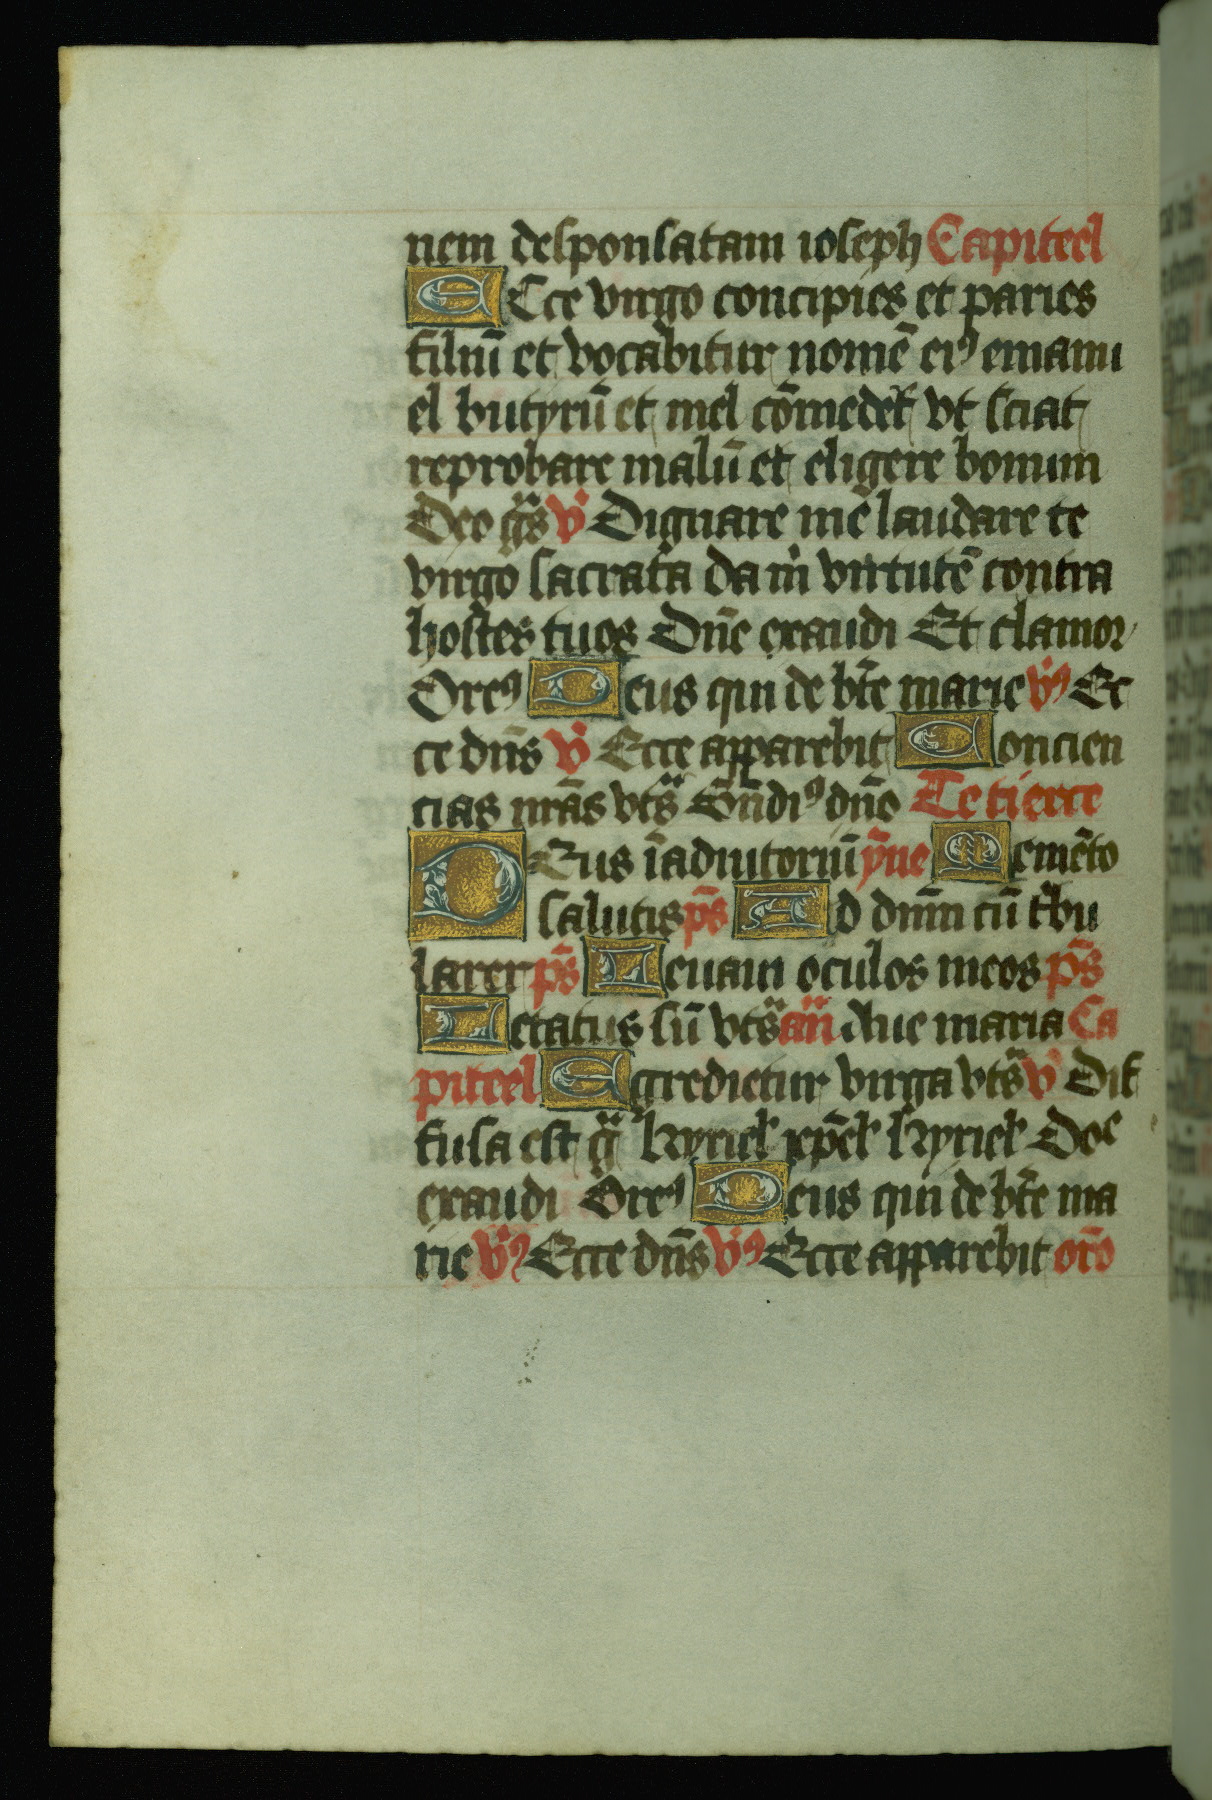 nem desponsatam ioseph Capiteel
ECce virgo concipies et paries
filiū et vocabitur nomē eiꝰ emanu
el butyrū et mel cōmedet vt sciat
reprobare malū et eligere bonum
Deo gr̄s v̓ Dignare mē laudare te
virgo sacrata da m̄ virtutē contra
hostes tuos Dn̄e exaudi Et clamor
Oreꝰ Deus qui de bt̄e marie v̓ꝰ Ec
ce dn̄s v̓ Ecce apparebit Concien
cias nr̄as vts̄ Bn̄diꝰ dn̄o Te tierce
DEus ī adiutoriū yn̄e Memēto
salutis ps̄ Ad dn̄m cū t̓bu
larer ps̄ Leuam oculos meos ps̄
Letatus sū vts̄ an̄ Aue maria Ca
piteel Egredietur virga vts̄ v̓ Dif
fusa est gr̄ kyriel xp̄el kyriel Doc
exaudi Oreꝰ Deus qui de bt̄e ma
rie v̓ꝰ Ecce dn̄s v̓ꝰ Ecce apparebit or̄o